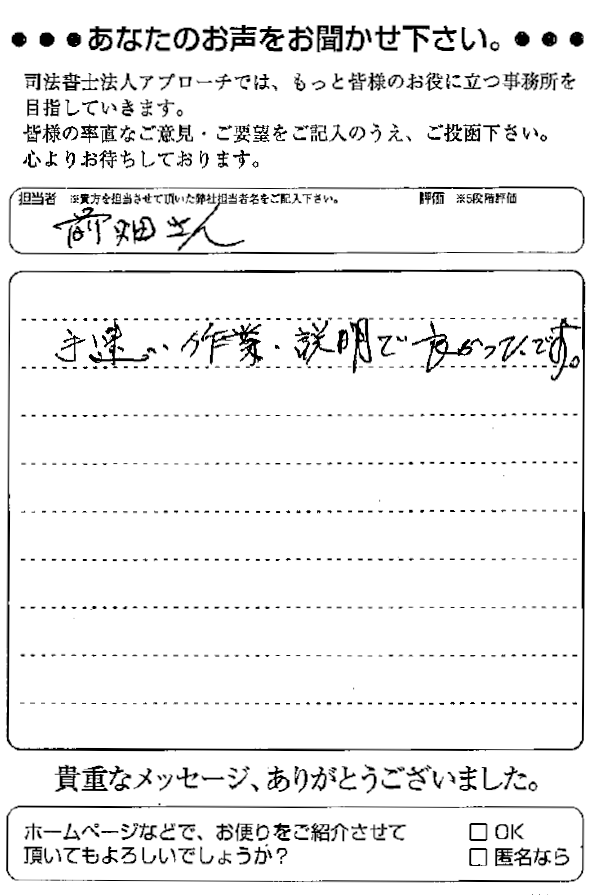 ●●●あなたのお声をお聞かせ下さい。●●●
司法書士法人アプローチでは、もっと皆様のお役に立つ事務所を
目指していきます。
皆様の率直なご意見・ご要望をご記入のうえ、ご投函下さい。
心よりお待ちしております。
担当者 ※貴方を担当させて頂いた弊社担当者名をご記入下さい。 評価 ※5段階評価
前畑さん
手速い作業・説明で良かったです。
貴重なメッセージ、ありがとうございました。
ホームページなどで、お便りをご紹介させて □ OK
頂いてもよろしいでしょうか？ □ 匿名なら